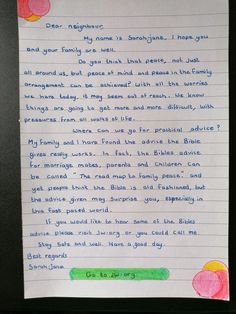 Dear neighbour,
My name is Sarahjane. I hope you
and your family are well.
Do you think that peace, not just
all around us, but peace of mind and peace in the family
arrangement can be achieved? With all the worries
we have today, it may seem out of reach. We know
things are going to get more and more difficult, with
pressures from all walks of life.
Where can we go for practical advice?
My family and I have found the advice the Bible
gives really works. In fact, the Bibles advice
for marriage mates, parents and children can
be called "The road map to family peace." and
yet people think the Bible is old fashioned, but
the advice given may surprise you, especially in
this fast paced world.
If you would like to hear some of the Bibles
advice please visit jw.org or you could call me.
Stay safe and well. Have a good day.
Best regards
Sarah-jane
Go to jw.org